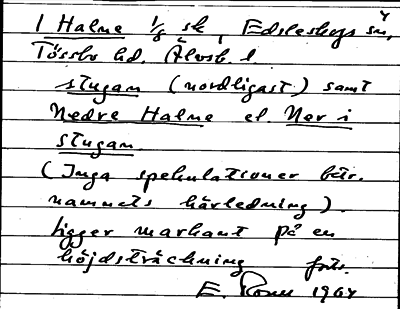 1 Halme 1/8 sk, Edsleskogs sn,
Tössbo hd. Älvsb. l
stugan (nordligast) samt
Nedre Halme el. Ner i
stugan.
(Inga spekulationer betr.
namnets härledning).
ligger markant på en
höjdsträckning forts.
E. 1964